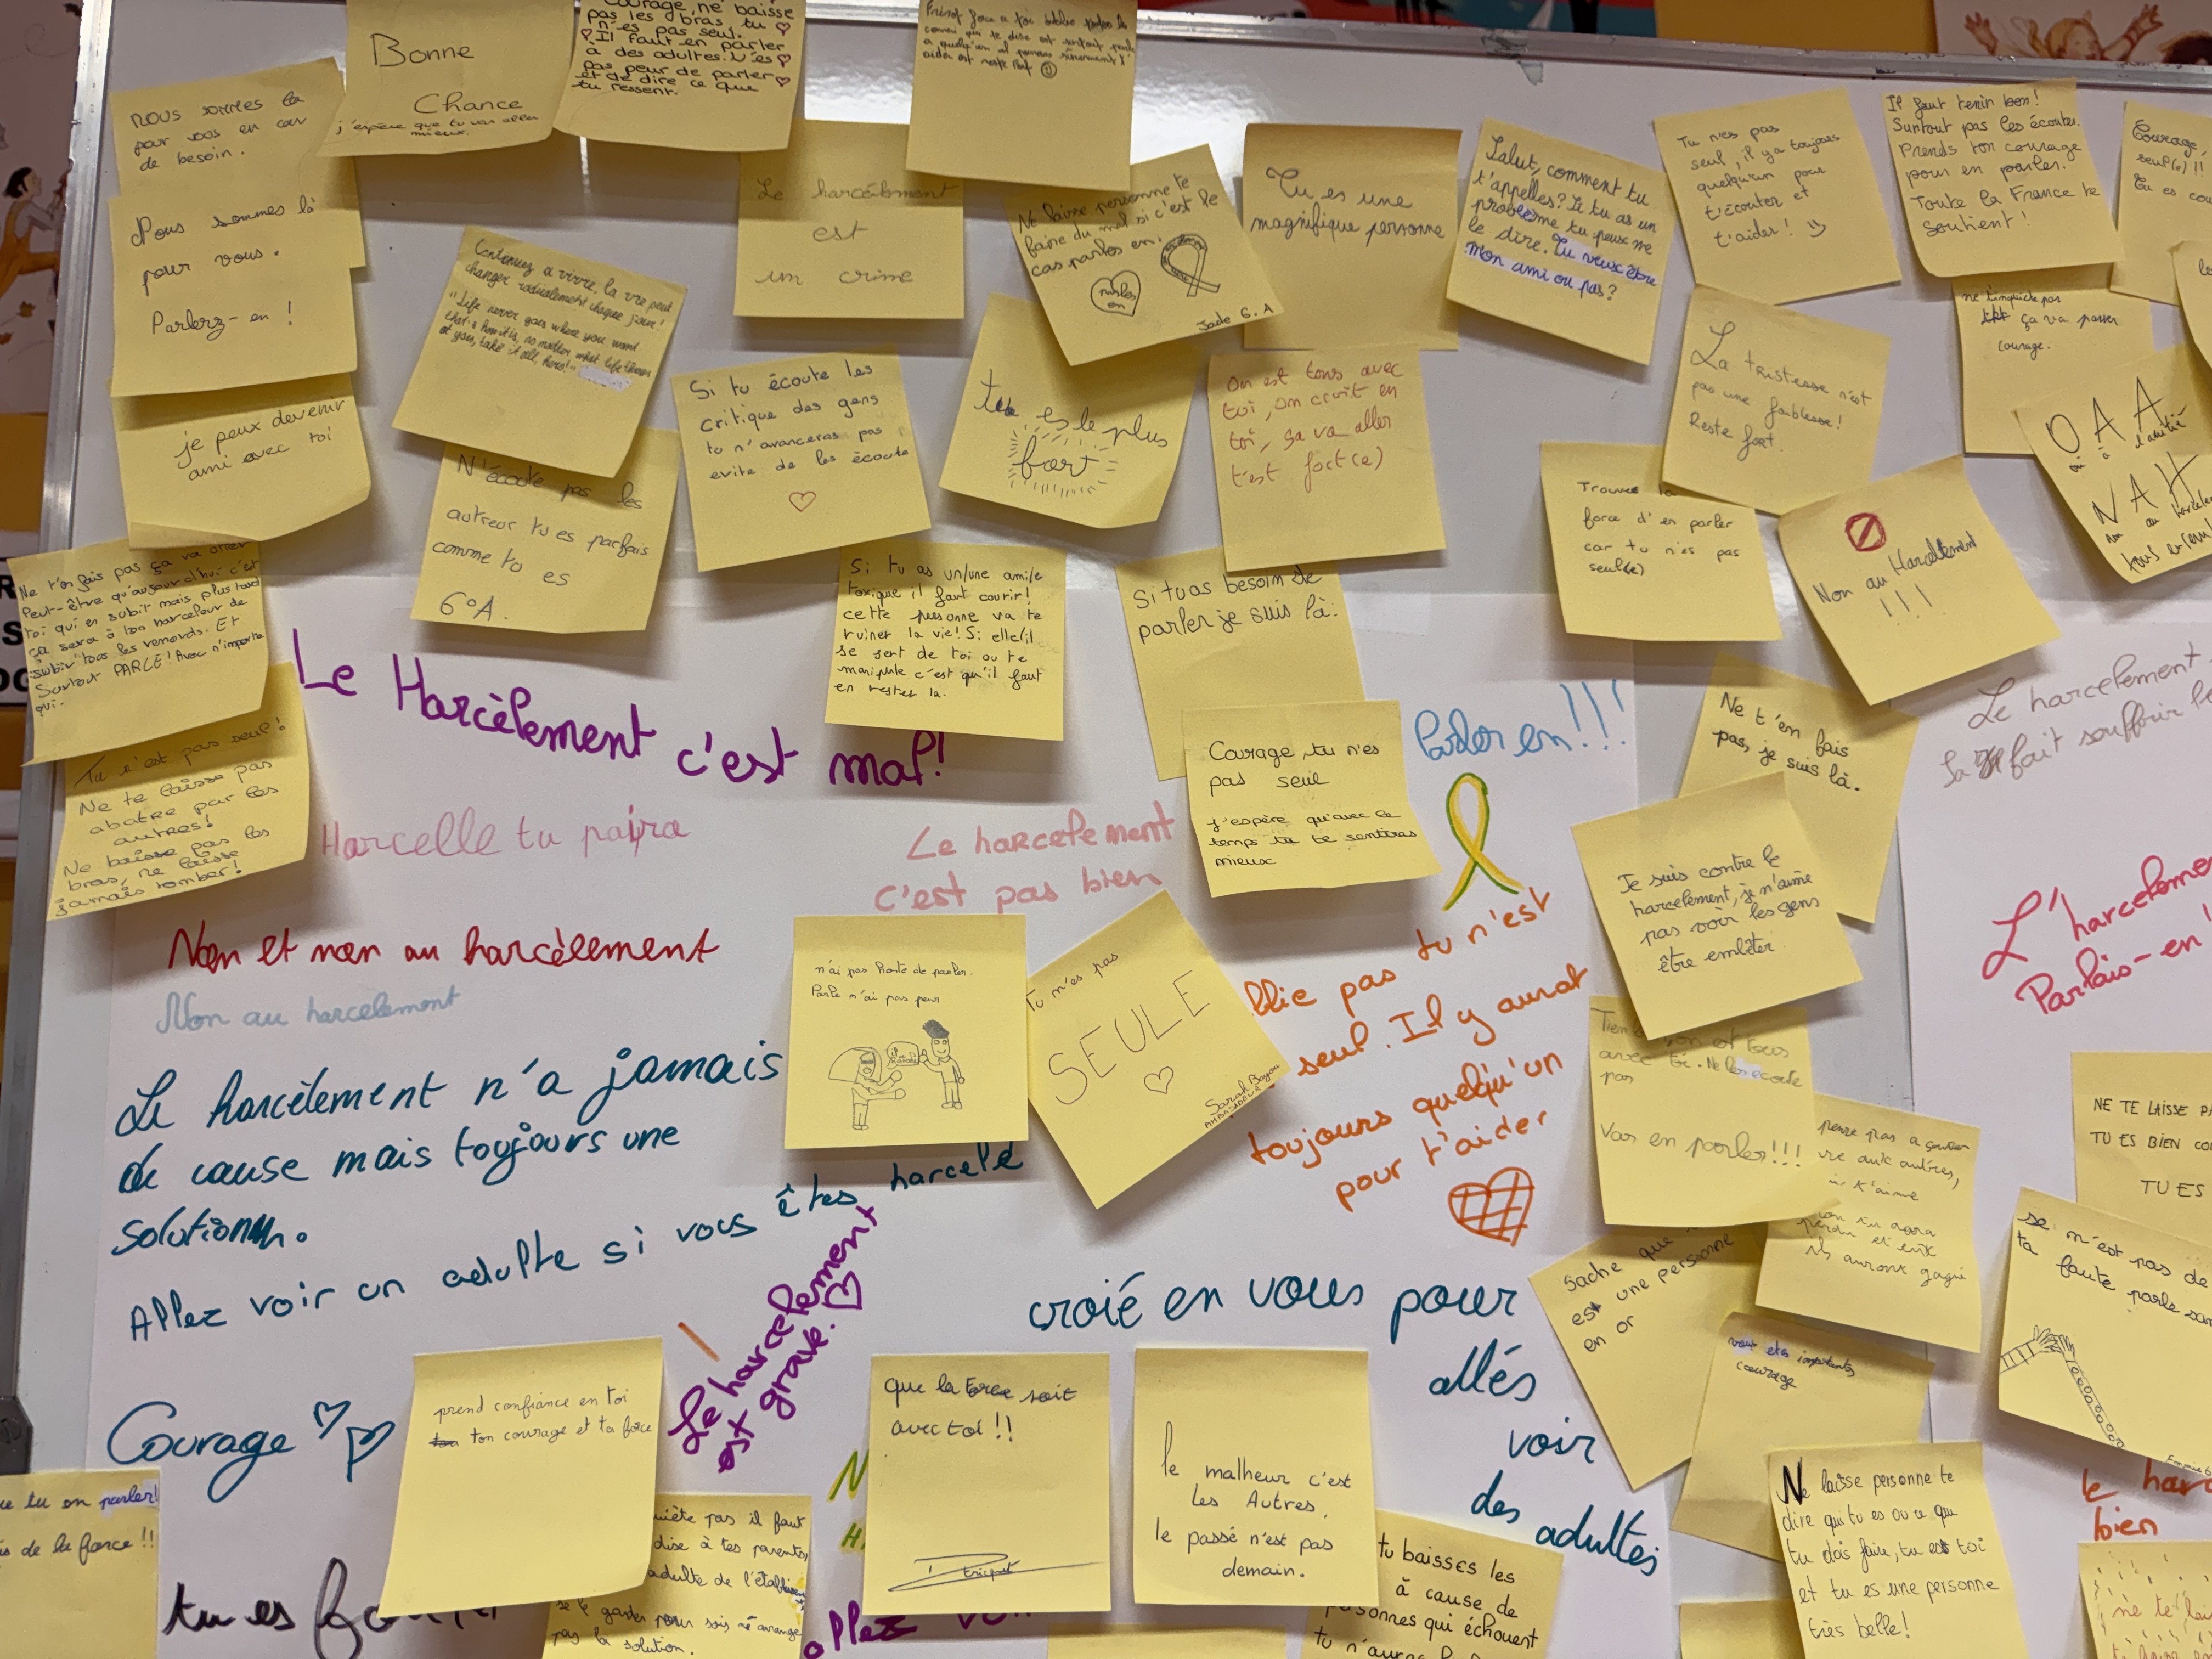 NOUS sommes là
pour vous en cas
de besoin.
Bonne
Chance
j'espère que tu vas aller
mieux.
Courage, ne baisse
pas les bras, tu
n'es pas seul.
Il faut en parler
à des adultes. N'es
pas peur de parler
et de dire ce que
tu ressent.
Nous sommes là
pour vous.
Parlerz-en !
je peux devenir
ami avec toi
Continuez à vivre, la vie peut
changer radicalement chaque jour!
"Life never goes where you want
that's how it is, no matter what life throws
at you, take it all, hero!"
N'écoute pas les
autreur tu es parfais
comme tu es
6°A.
Le harcèlement
est
un crime
Si tu écoute les
critique des gens
tu n'avanceras pas
evite de les écoute
Ne laisse personne te
faire du mal si c'est le
cas parles en.
parles
en
Jade 6.A
tu es le plus
fort
Tu es une
magnifique personne
On est tous avec
toi, on croit en
toi, sa va aller
t'est fort(e)
Salut, comment tu
t'appelles? Si tu as un
problème tu peux me
le dire. Tu veux être
mon ami ou pas?
Tu n'es pas
seul, il y a toujours
quelqu'un pour
t'écouter et
t'aider !
Il faut tenir bon!
Surtout pas les écouter.
Prends ton courage
pour en parler.
Toute la France te
soutient !
Courage,
seul(e) !!
Tu es
La tristesse n'est
pas une faiblesse!
Reste fort.
ne t'inquiete pas
ça va passer
courage.
O A A
oui à l'amitié
N A H
non au
Trouve la
force d'en parler
car tu n'es pas
seul(e)
Non au Harcèlement
! ! !
Ne t'en fais pas ça va aller
Peut-être qu'aujourd'hui c'est
toi qui en subit mais plus tard
ça sera à ton harceleur de
subir tous les remords. Et
Surtout PARLE! Avec n'importe
qui.
Tu n'est pas seul!
Ne te laisse pas
abatre par les
autres!
Ne baisse pas les
bras, ne laisse
jamais tomber!
Si tu as un/une ami/e
toxique il faut courir!
cette personne va te
ruiner la vie! Si elle/il
se sert de toi ou te
manipule c'est qu'il faut
en rester la.
Si tu as besoin de
parler je suis là.
Le Harcèlement
c'est mal!
Harcelle tu paira
Le harcelement
c'est pas bien
Courage, tu n'es
pas seul
j'espère qu'avec le
temps tu te sentiras
mieux
Parler en!!!
Ne t'en fais
pas, je suis là.
Je suis contre le
harcelement, je n'aime
pas voir les gens
être embêter
Le harcelement
fait souffrir
L'harceleme
Parlais-en
Non et non au harcèlement
Non au harcelement
n'ai pas honte de parler.
Parle n'ai pas peur
Tu n'es pas
SEULE
Sarah
blie pas tu n'est
seul. Il y aurat
toujours quelqu'un
pour t'aider
Le harcèlement n'a jamais
de cause mais toujours une
solution.
Allez voir un adulte si vous êtes harcelé
on est tous
avec toi. Ne les ecoute
pas
Vas en parler!!!
pense pas a
vre aux autres,
t'aime
perdu et eux
ils auront gagné
NE TE LAISSE PA
TU ES BIEN CO
TU ES
se n'est pas de
ta faute parle
Le harcelement
est grave.
croié en vous pour
allés
voir
des adultes
Sache que
est une personne
en or
vous etes importants
courage
Courage
prend confiance en toi
ton courage et ta force
que la force soit
avec toi !!
le malheur c'est
les Autres,
le passé n'est pas
demain.
Ne laisse personne te
dire qui tu es ou ce que
tu dois faire, tu es toi
et tu es une personne
très belle!
le har
bien
tu en parler!
de la force !!
tu es
uiète pas il faut
dise à tes parents,
adulte de l'établissement
se le garder pour sois n'arrange
pas la solution.
allez
tu baisses les
à cause de
personnes qui échouent
tu n'auras
ne te